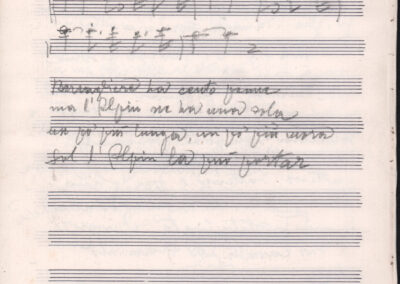 Bersagliere ha cento penne
ma l'Alpin ne ha una sola
un pò più lunga, un pò più mora
sol l'Alpin la può portar